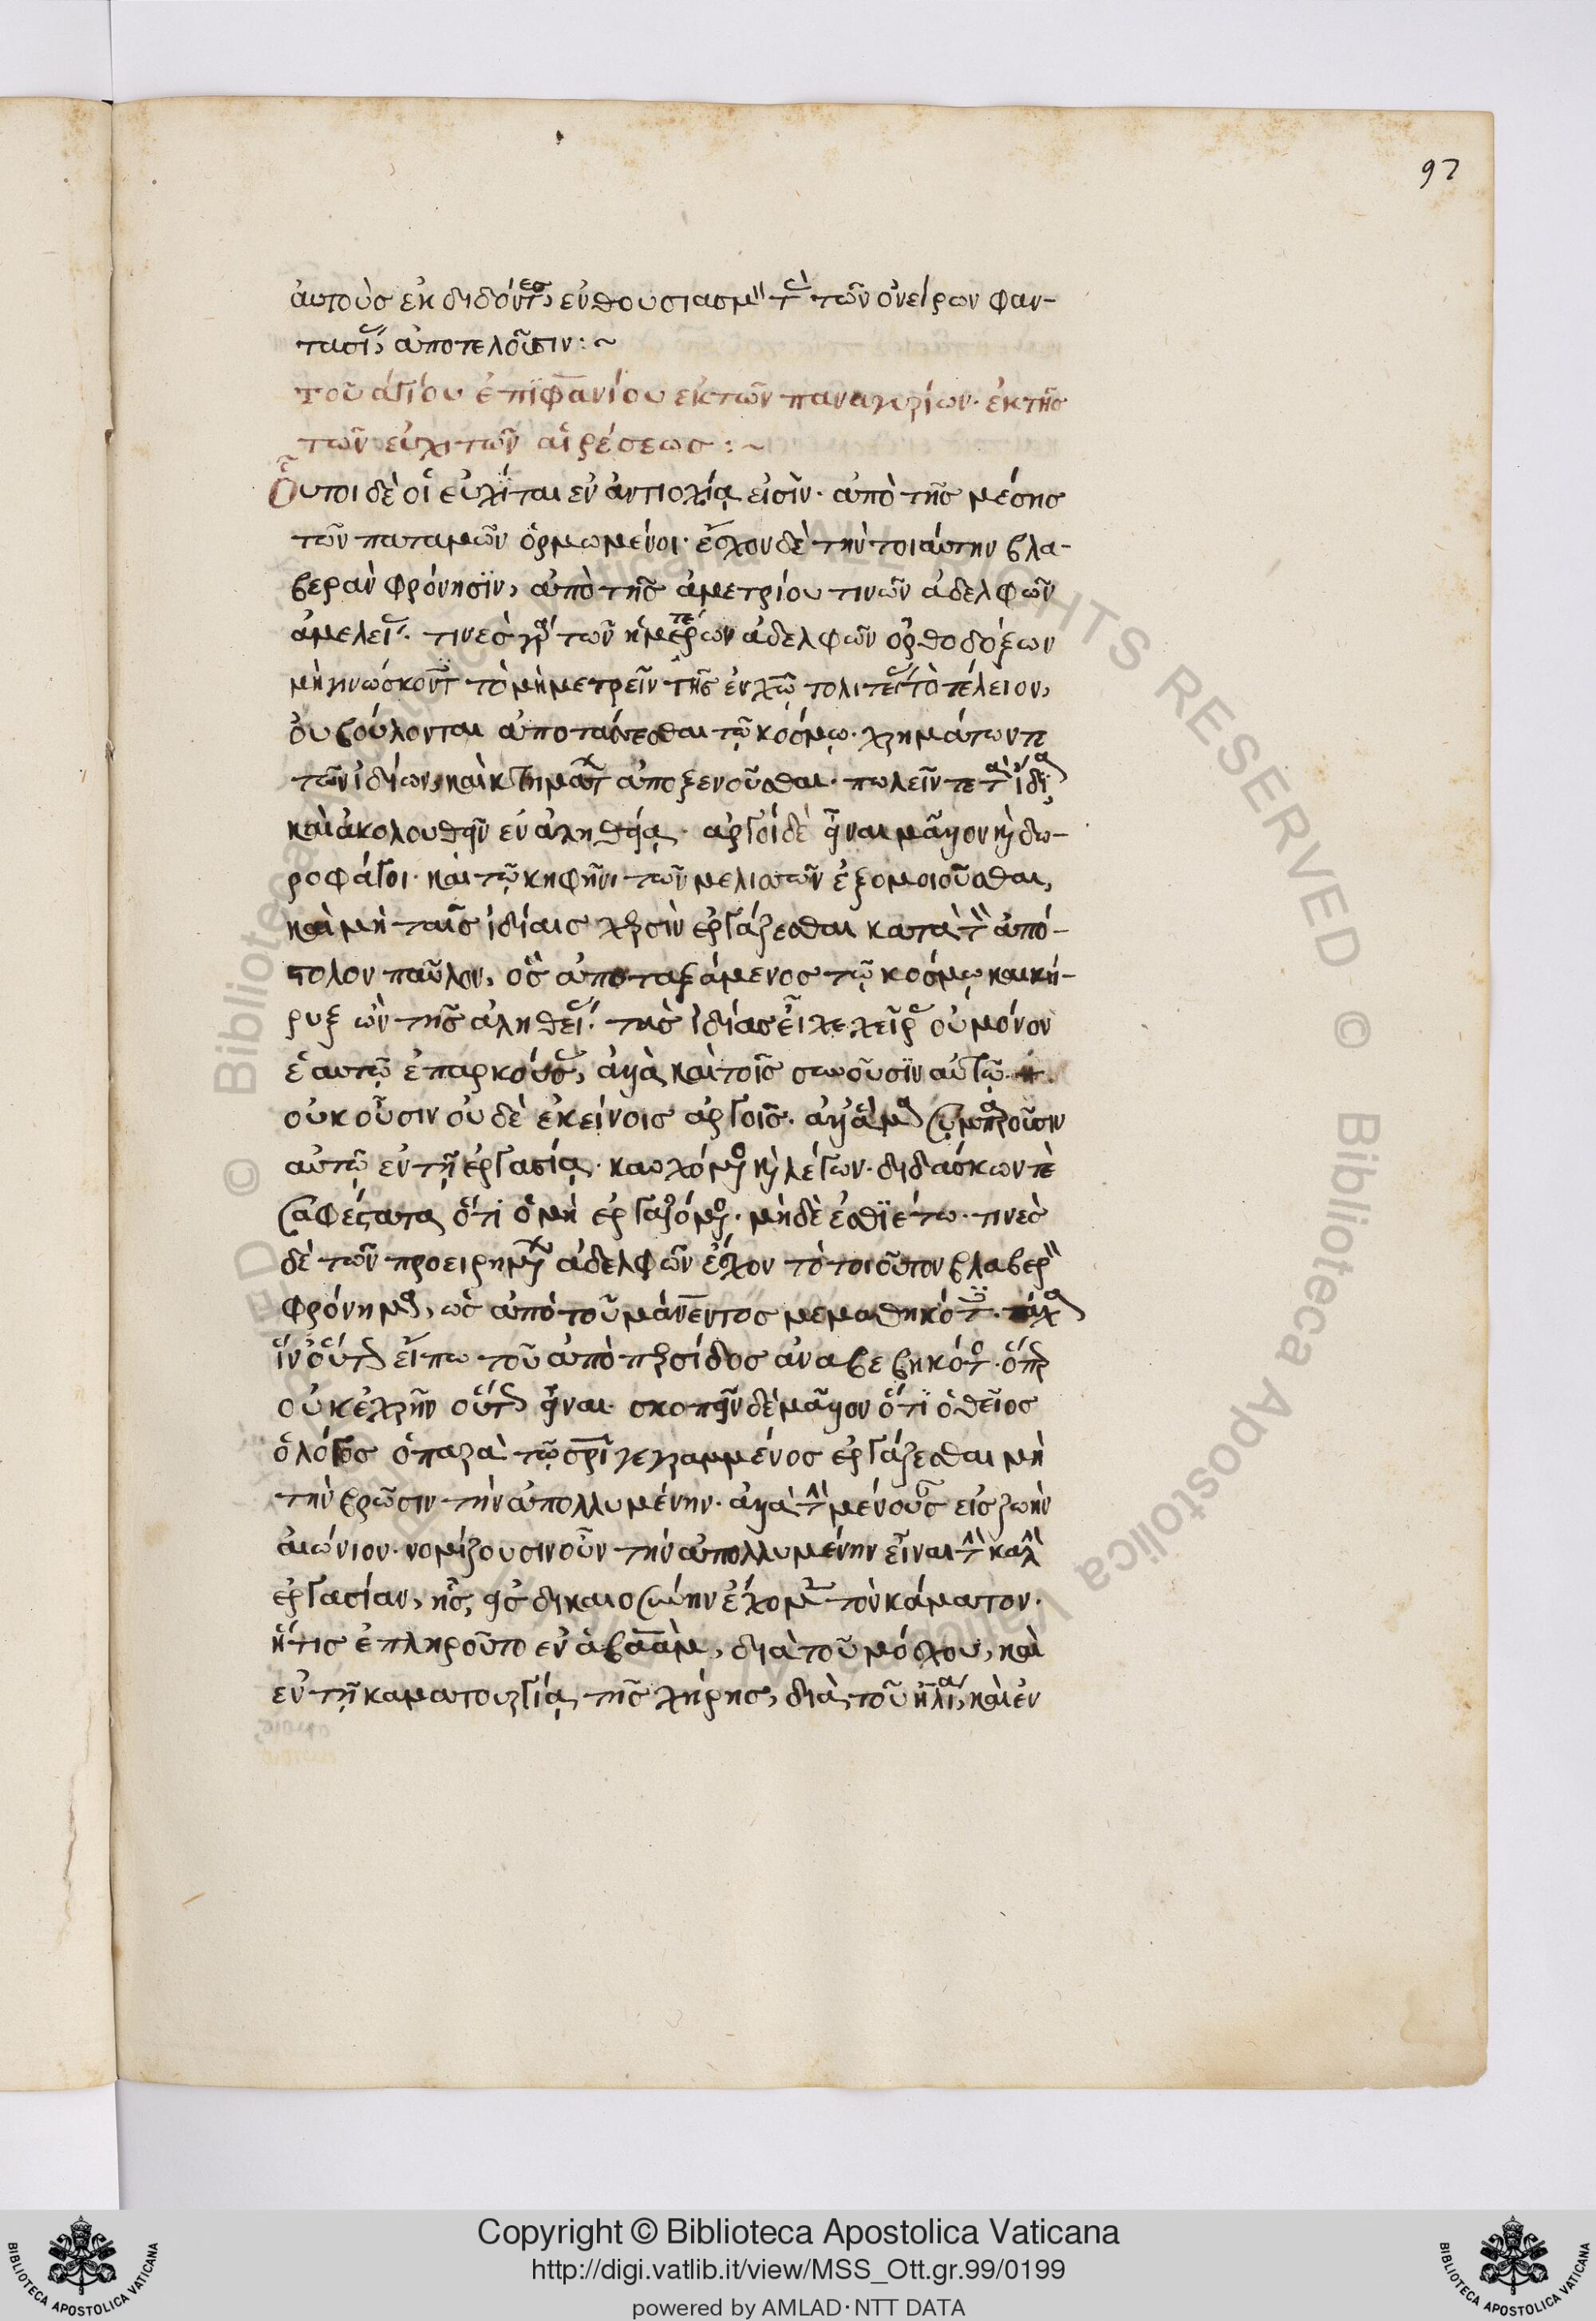 97
ἀυτοὺς ἐκδιδόντες, ἐνθουσιασμοὺς τὰς τῶν ὀνείρων φαν-
τασίας, ἀποτελοῦσιν:~
Τοῦ ἁγίου ἐπιφανίου ἐκ τῶν παναρίων. ἐκ τῆς
τῶν εὐχιτῶν αἱρέσεως:~
Οὗτοι δὲ οἱ εὐχίται ἐν ἀντιοχίᾳ εἰσὶν. ἀπὸ τῆς μέσης
τῶν ποταμῶν ὁρμωμένοι. ἔσχον δὲ τὴν τοιάυτην βλα-
βερὰν φρόνησϊν, ἀπὸ τῆς ἀμετρίου τινῶν ἀδελφῶν
ἀμελείας. τινὲς γὰρ τῶν ἡμετέρων ἀδελφῶν ὀρθοδόξων
μὴ γινώσκοντες τὸ μὴ μετρεῖν τῆς ἐν χῶ πολιτείας τὸ τέλειον,
ὀυ βούλονται ἀποτάσσεσθαι τῷ κόσμῳ. χρημάτων τε
τῶν ἰδίων, καὶ κτημάτων ἀποξενοῦσθαι. πωλεῖν τε τὰ ἴδια
καὶ ἀκολουθεῖν ἐν ἀληθείᾳ. ἀργοὶ δὲ εἶναι μᾶλλον καὶ δω-
ροφάγοι. καὶ τῷ κηφῆνι τῶν μελισσῶν ἐξομοιοῦσθαι,
καὶ μὴ ταῖς ἰδίαις χερσὶν ἐργάζεσθαι κατὰ τὸν ἀπό-
στολον παῦλον, ὃς ἀποταξάμενος τῷ κόσμῳ και κή-
ρυξ ὢν τῆς ἀληθείας. τὰς ἰδίας εἶχε χεῖρας οὐ μόνον
ἑαυτῷ ἐπαρκούσας, ἀλλὰ καὶ τοῖς συνοῦσϊν αὐτῷ.
οὐκ οὖσιν ὀυδὲ ἐκείνοις ἀργοῖς. ἀλλ' ἅμα συμπαροῦσιν
αὐτῷ ἐν τῇ ἐργασίᾳ. καυχόμενος καὶ λέγων. διδάσκων τὲ
σαφέστατα ὅτι ὁ μὴ ἐργαζόμενος. μὴδὲ ἐσθϊέτω. τινὲς
δὲ τῶν προειρημένων ἀδελφῶν ἔσχον τὸ τοιοῦτον βλαβερὸν
φρόνημα, ὡς ἀπὸ τοῦ μάνεντος μεμαθηκότες. τάχα
ἵν' οὕτως εἴπω τοῦ ἀπὸ περσίδος ἀναβεβηκότος. ὅπερ
οὐκ ἐχρῆν οὕτως εἶναι. σκοπεῖν δὲ μᾶλλον ὅτϊ ὁ θεῖος
ὁ λόγος ὁ παρὰ τῷ σρὶ γεγραμμένος ἐργάζεσθαι μὴ
τὴν βρῶσιν τὴν ἀπολλυμένην. ἀλλὰ τὴν μένουσαν εἰς ζωὴν
ἀιώνιον. νομίζουσιν οὖν τὴν ἀπολλυμένην εἶναι τὴν καλὴν
ἐργασίαν, ἧς, εἰς δικαιοσύνην ἔχομεν τὸν κάματον.
ἥτις ἐπληροῦτο ἐν ἀβαὰμ, διὰ τοῦ μόσχου, καὶ
ἐν τῇ καματουργίᾳ τῆς χήρης, διὰ τοῦ ἠλία, καὶ ἐν